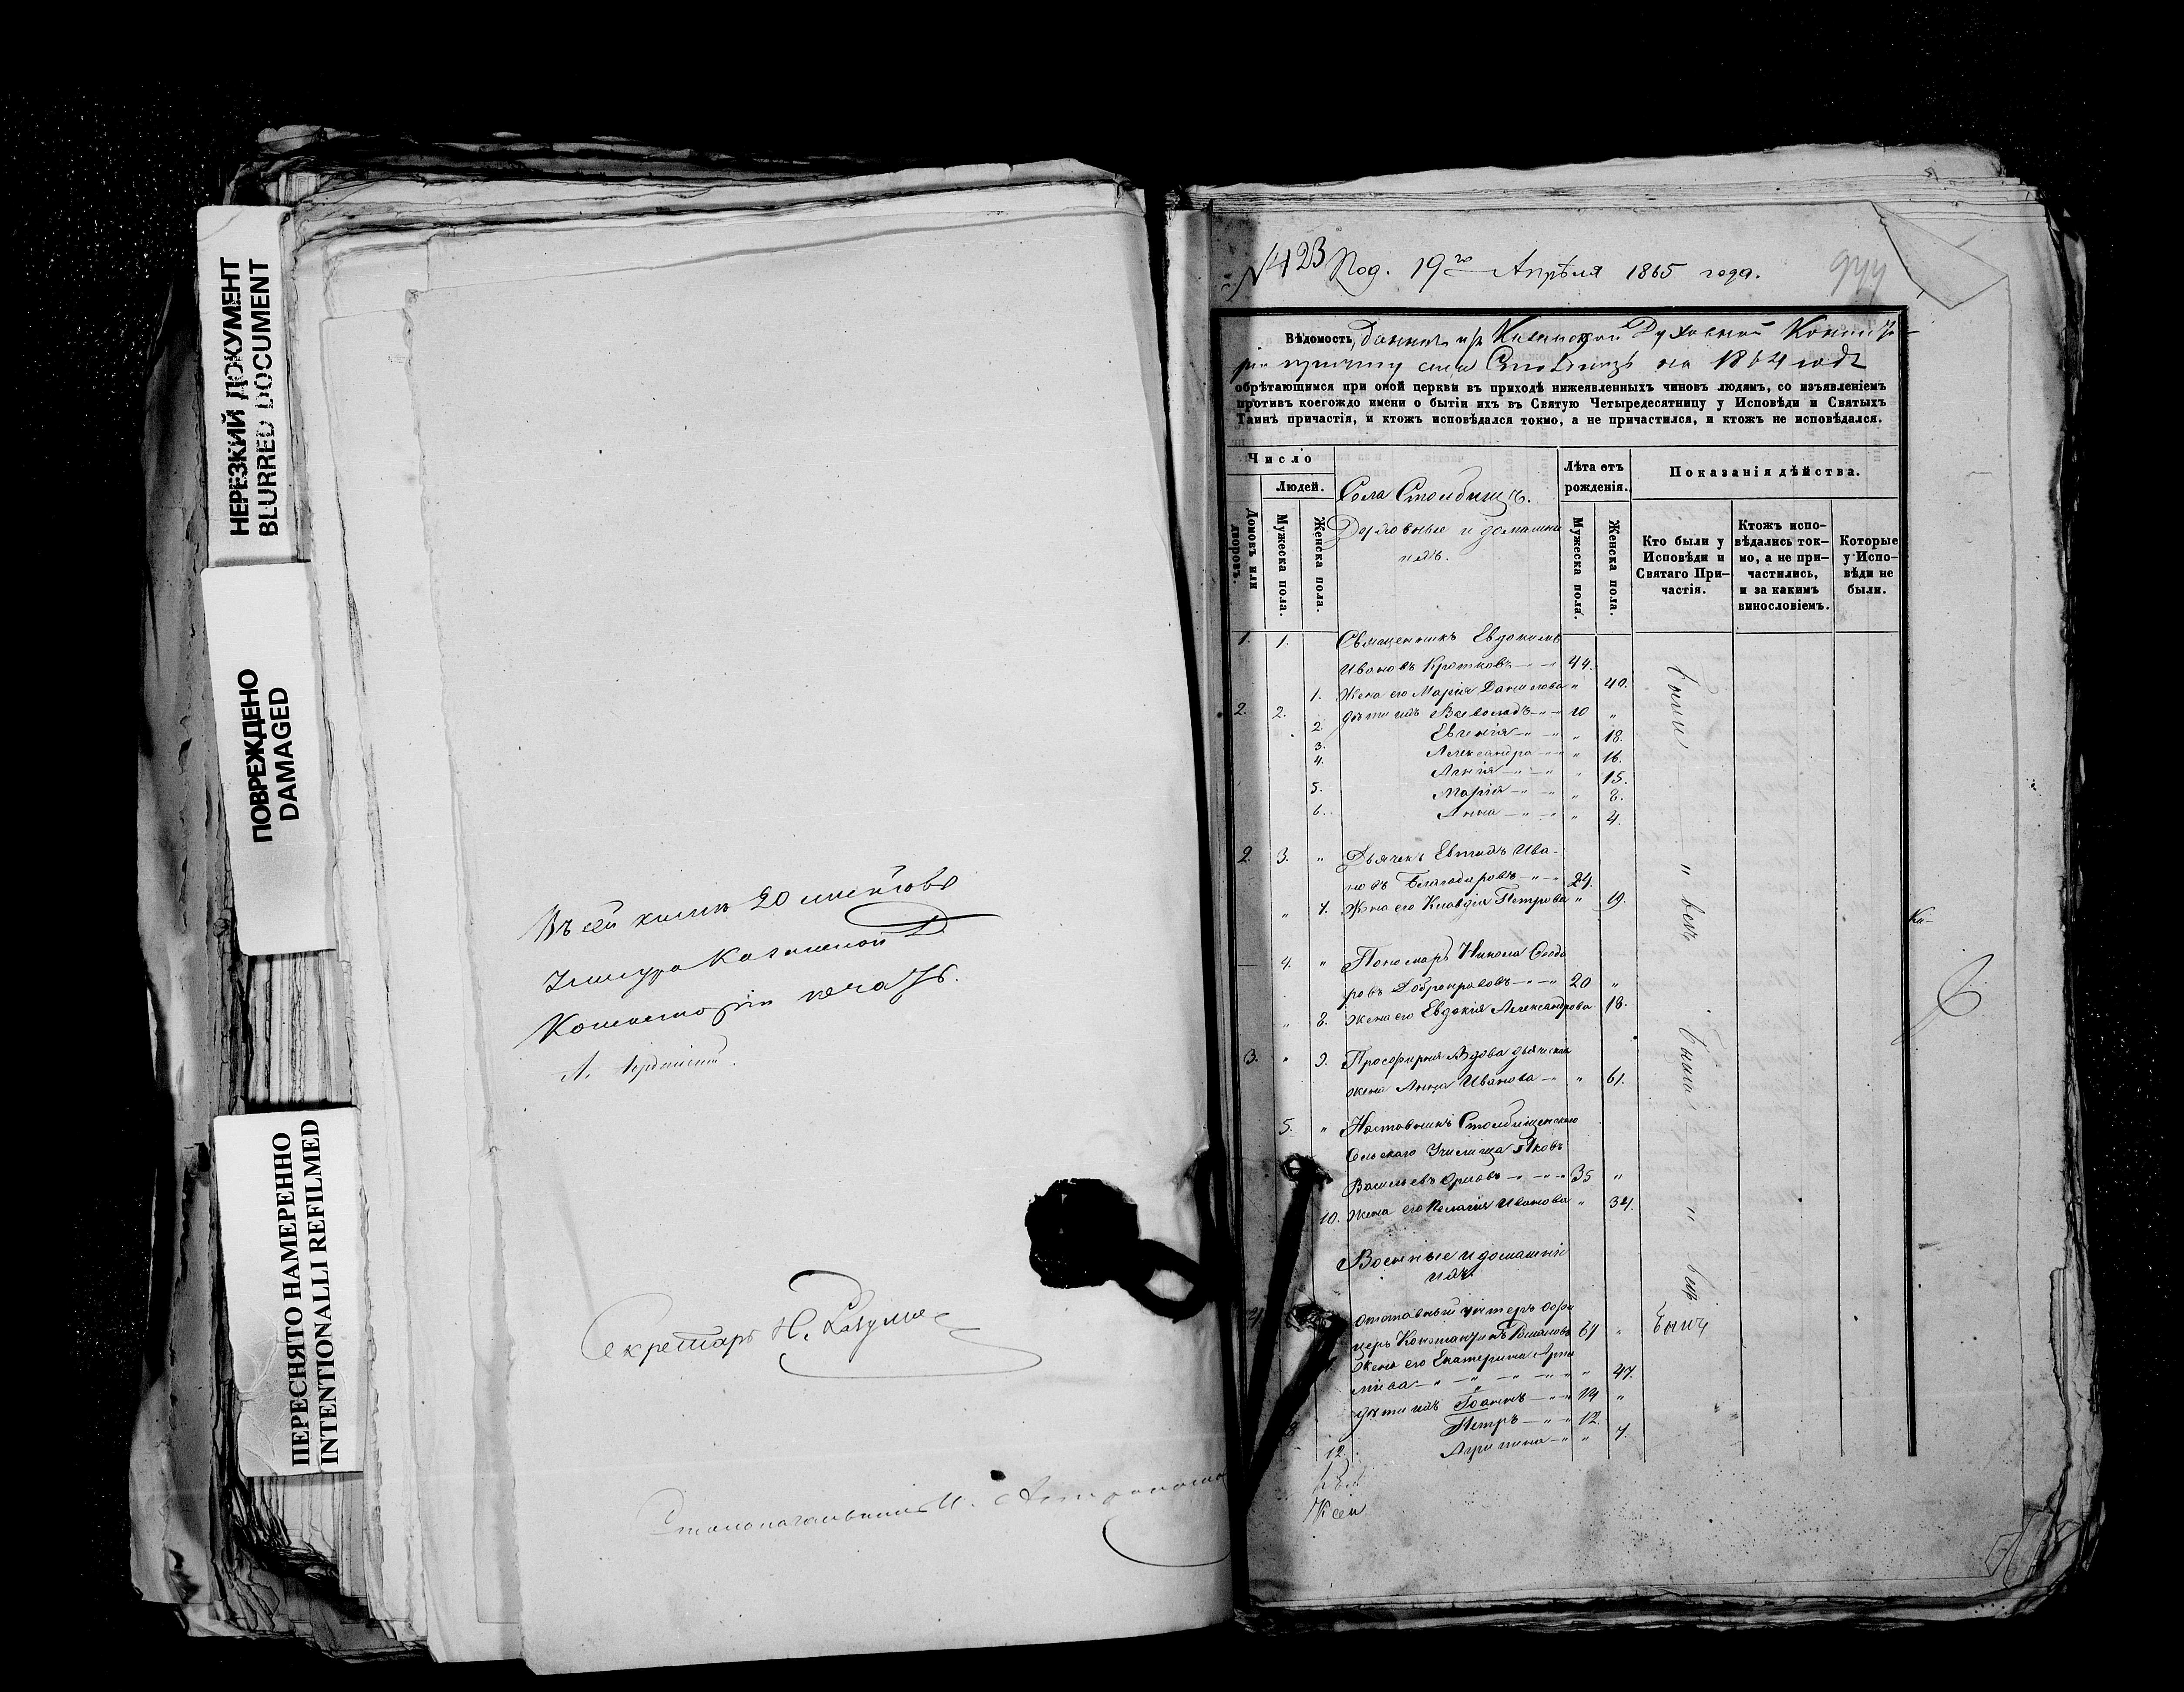 НЕРЕЗКИЙ ДОКУМЕНТ
BLURRED DOCUMENT
ПОВРЕЖДЕНО
DAMAGED
ПЕРЕСНЯТО НАМЕРЕННО
INTENTIONALLI REFILMED
Въ сей книгѣ 20 листовъ
Шнура Казанской Д.
Консисторіи печать.
Секретарь Н. Разумо
Столоначальникъ
№423 Под. 19го Апрѣля 1865 года.
Вѣдомость, данная изъ Казанской Духовной Консисто-
ріи причту села Столбищъ на 1864 годъ
обрѣтающимся при оной церкви въ приходѣ нижеявленныхъ чиновъ людямъ, со изъявленіемъ
противъ коегождо имени о бытіи ихъ въ Святую Четыредесятницу у Исповѣди и Святыхъ
Таинъ причастія, и ктожъ исповѣдался токмо, а не причастился, и ктожъ не исповѣдался.
Число
Людей.
Домовъ или дворовъ.
Мужеска пола.
Женска пола.
Села Столбищъ.
Духовные и домашніе
ихъ.
Лѣта отъ
рожденія.
Мужеска пола.
Женска пола.
Показанія дѣйства.
Кто были у
Исповѣди и
Святаго При-
частія.
Ктожъ испо-
вѣдались ток-
мо, а не при-
частились,
и за какимъ
винословіемъ.
Которые
у Испо-
вѣди не
были.
1. 1. Священникъ Евдокимъ
Ивановъ Кротковъ 44.
1. Жена его Марія Данилова " 40.
2. 2. дѣти ихъ Всеволодъ 20 "
2. Евгенія " 18.
3. Александра " 16.
4. Агнія " 15.
5. Марія " 8.
6. Анна " 4.
2. 3. " Дьячекъ Ива-
новъ Благодаровъ 24.
" 7. Жена его Клавдія Петрова " 19.
4. " Пономарь Никола Ѳеодо
ровъ Добронравовъ 20 "
" 8. Жена его Евдокія Александрова 18.
3. " 9. Просфирня Вдова дьяческая
жена Анна Иванова " 61.
5. " Наставникъ Столбищенскаго
Сельскаго Училища Яковъ
Васильевъ Орловъ 35 "
10. Жена его Пелагія Иванова " 34.
Военные и домашніе
ихъ.
Отставный унтеръ офи
церъ Константинъ Романовъ 61 " были
Жена его Екатерина
" 47.
дѣти ихъ Іоаннъ 14 "
Петръ 12.
12. Агрипина " 7.
были " всѣ были " всѣ